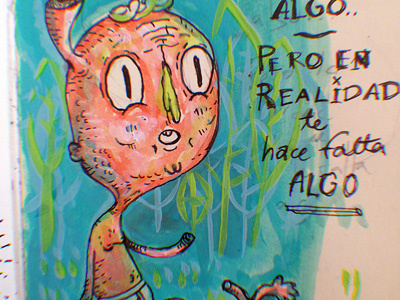 ALGO..
PERO EN
REALIDAD
te
hace falta
ALGO